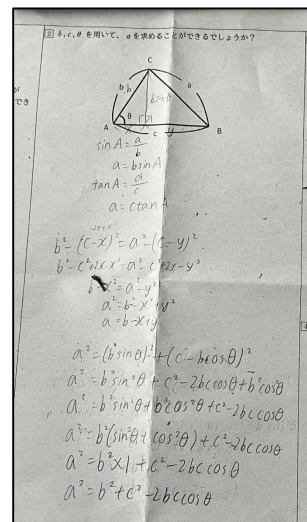 が
でき
② b, c, θ を用いて、 a を求めることができるでしょうか?
C
b
a
b sinθ
A
θ
x
y
B
c
sinA = a/b
a = bsinA
tanA = a/c
a = ctanA
b² - (c-x)² = a² - (c-y)²
b² - c² + 2x - x² = a² - c² + 2x - y²
b² - x² = a² - y²
a² = b² - x² + y²
a = b - x + y
a² = (b sinθ)² + (c - bcosθ)²
a² = b² sin²θ + c² - 2bc cosθ + b² cos²θ
a² = b² sin²θ + b² cos²θ + c² - 2bc cosθ
a² = b² (sin²θ + cos²θ) + c² - 2bc cosθ
a² = b² × 1 + c² - 2bc cosθ
a² = b² + c² - 2bc cosθ